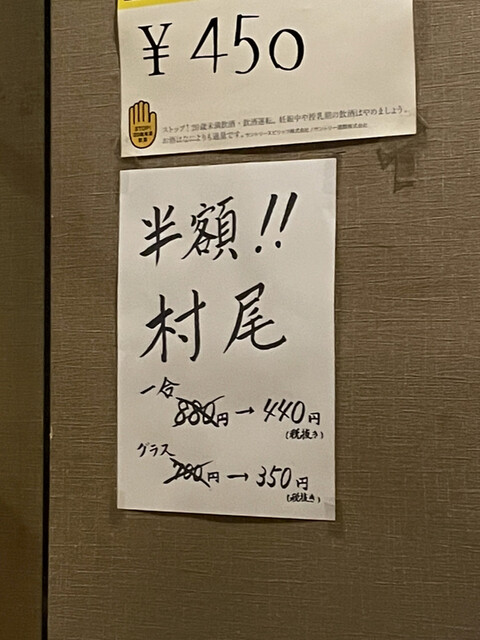 ¥450
STOP!
ストップ!20歳未満飲酒・飲酒運転。妊娠中や授乳期の飲酒はやめましょう。
お酒はなによりも適量です。サントリースピリッツ株式会社/サントリー酒類株式会社
半額!!
村尾
一合
880円→440円
(税抜き)
グラス
700円→350円
(税抜き)